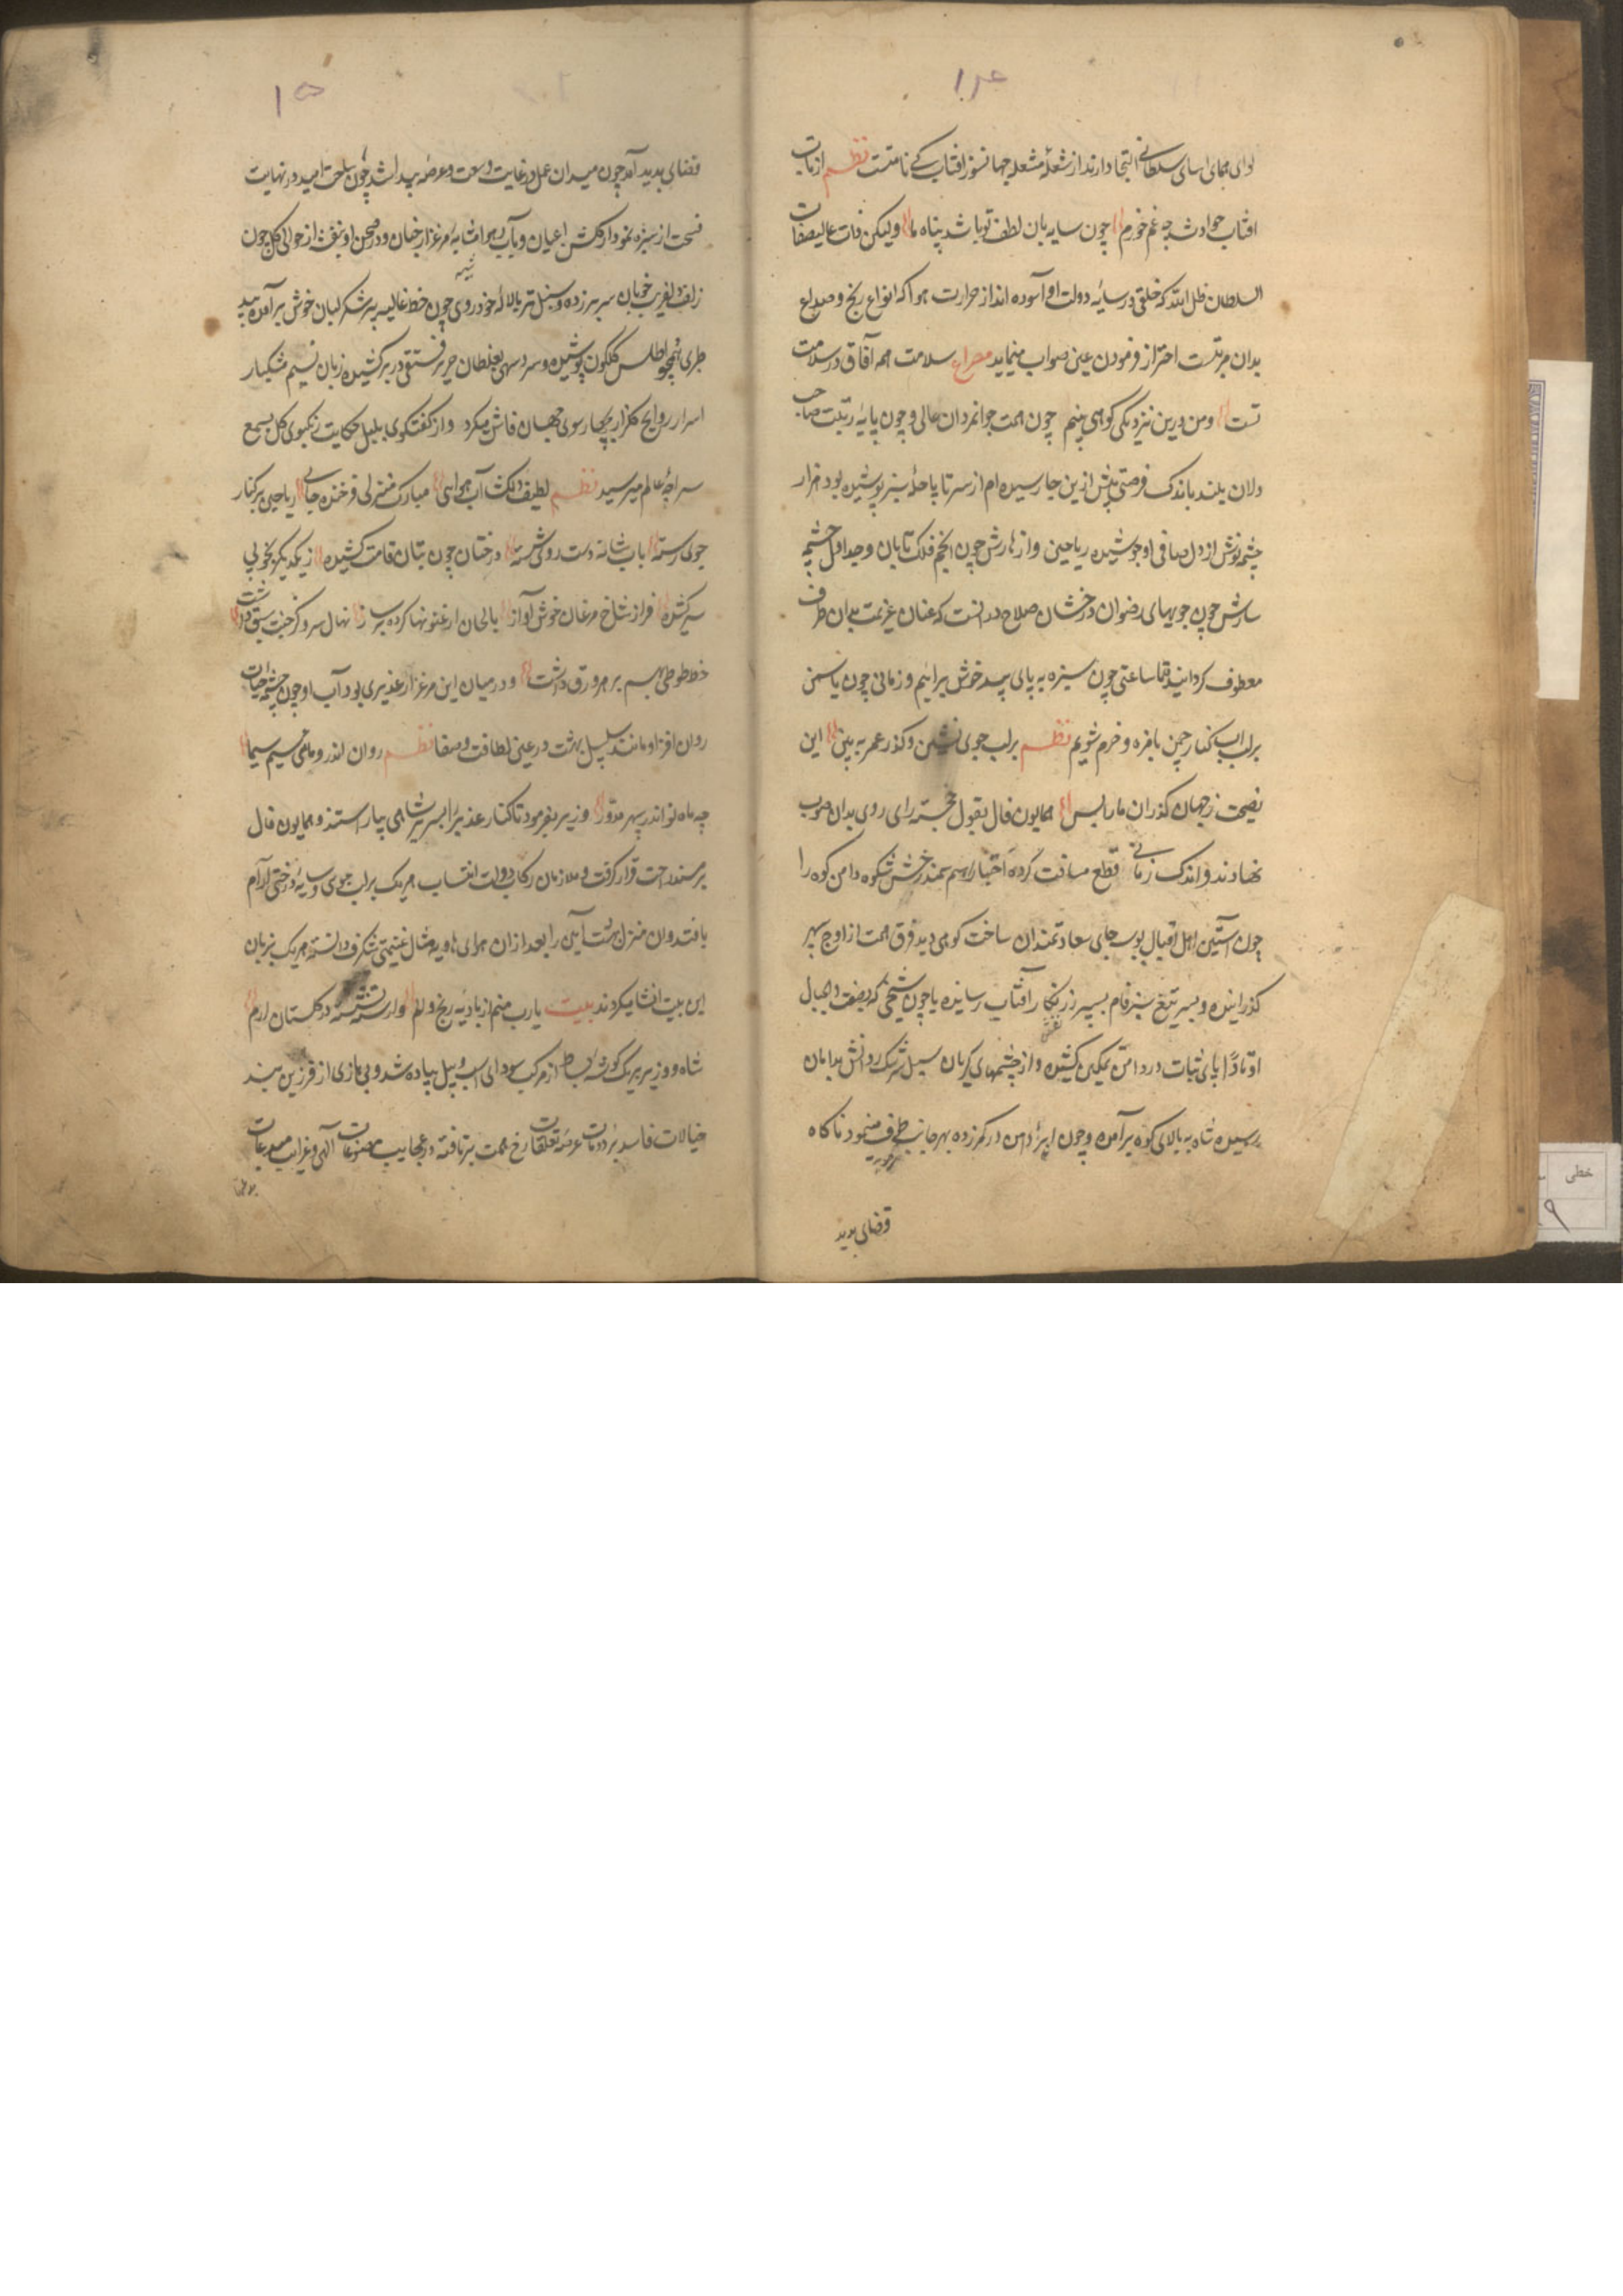 ۱۴
لوای همای اسای سلطانی التجا دارند از شعلهٔ مشعله جهانسوز افتاب کے نا متست نظم از تاب
افتاب حوادث چه غم خورم چون سایه بان لطف تو باشد پناه ما ولیکن ذات عالیصفات
السلطان ظل الله که خلقی در سایهٔ دولت او آسوده اند از حرارت هوا که انواع رنج و صداع
بدان مرتبست احتراز فرمودن عین صواب مینماید مصراع سلامت همه آفاق در سلامت
تست ومن درین نزدیکی کوهی بینم چون همت جوانمردان عالی و چون پایهٔ رتبت صاحب
دلان بلند باندک فرصتی پیش ازین جا رسیده ام از سر تا پا حلهٔ سبز پوشیده بود هزار
چشمه نوش از دل صافی او جوشیده ریاحین و ازهارش چون انجم فلک تابان و جداول چشمه
سارش چون جویهای رضوان درخشان صلاح در انست که عنان عزیمت بدان طرف
معطوف کردانید تا ساعتی چون سبزه به پای بید خوش برائیم و زمانی چون یاسمن
بر لب اب کنار چمن تازه و خرم شویم نظم بر لب جوی نشین و کذر عمر به بین این
نصیحت ز جهان کذران ما را بس همایون فال بقول خجسته رای روی بدان صوب
نهادند و اندک زمانے قطع مسافت کرده سمند شکوه دامن کوه را
چون آستین اهل اقبال بوسه جای سعادتمندان ساخت کوهی دید فرق همت از اوج سپهر
کذرانیده و بسر تیغ سبز فام بسپر زرنکار آفتاب رسانیده یا چون شیخی که بصفت والجبال
اوتادًا پای ثبات در دامن تمکین کشیده و از چشمهای کریان سیل سرشک روانش بدامان
رسیده شاه به بالای کوه برآمده و چون ابر دامن در کمر زده بهر جانب طوف مینمود ناکاه
فضای پدید
۱۵
فضای پدید آمد چون میدان عمل در غایت وسعت و عرصهٔ پیدا شد چون ساحت امید در نهایت
فسحت از سبزه نمودار کلشن اعیان و بآب و هوا مشابهٔ مرغزار جنان و در صحن او بنفشه از حوالی کل چون
زلف دلفریب خوبان سر بر زده و سنبل تر با لالهٔ خودروی چون خط غالیه بر شکر لبان خوش برآمده بید
طری همچو اطلس کلکون پوشیده و سرو سهی حریر فستقی در بر کشیده زبان نسیم مشکبار
اسرار روایح کلزار بچارسوی جهان فاش میکرد و از کفتکوی بلبل حکایت رنکبوی کل بسمع
سراچهٔ عالم میرسید نظم لطیف دلکش آب هوایی مبارک منزلی فرخنده جایی ریاحین بر کنار
جوی رسته باب شانه دست و روی شسته درختان چون بتان قامت کشیده ز یکدیکر بخوبی
سر کشیده فراز شاخ مرغان خوش آواز بالحان ارغنونها کرده بر ساز نهال سرو کز جنت سبق داشت
خط طوطی لهم بر هر ورق داشت و در میان این مرغزار غدیری بود آب او چون چشمه حیات
روان افزا و مانند سلسبیل بهشت در عین لطافت و صفا نظم روان اندر و ماهی سیم سیما
چه ماه نو اندر سپهر مدوّر وزیر بفرمود تا کنار غدیر را بسریر شاهی بیاراستند و همایون فال
بر مسند راحت قرار کرفت و ملازمان رکاب دولت انتساب هر یک بر لب جوی و سایهٔ درختی ارام
یافتند وان منزل بهشت آیین را بعد از ان هوای هاویه مثال غنیمتی شکرف دانسته هر یک بزبان
این بیت انشا میکردند بیت یارب منم از بادیهٔ رنج و الم وارسته نشسته در کلستان ارم
شاه و وزیر بر یک کوشهٔ بساط از مرکب سودای اسب و پیل پیاده شد و بی بازی از فرزین بند
خیالات فاسد عرصهٔ تعلقات رخ همت برتافته در عجایب مصنوعات آلهی و غرایب مبدعات